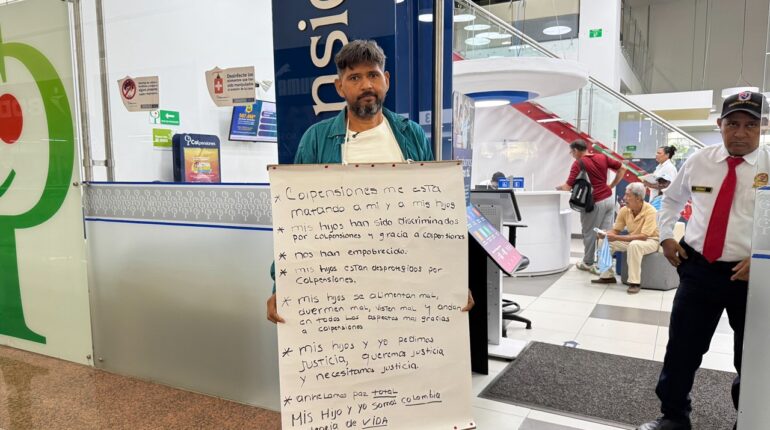 nsio
Desinfecte los
Colpensiones
* Colpensiones me esta
matando a mi y a mis hijos
* mis hijos han sido discriminados
por colpensiones y gracia a colpensiones
* nos han empobrecido.
* mis hijos estan desprotegidos por
colpensiones.
* mis hijos se alimentan mal,
duermen mal, visten mal y andan
en todos los aspectos mal gracias
a colpensiones
* mis hijos y yo pedimos
justicia, queremos justicia
y necesitamos justicia.
* anhelamos paz total
Mis Hijo y yo somos colombia
potencia de VIDA